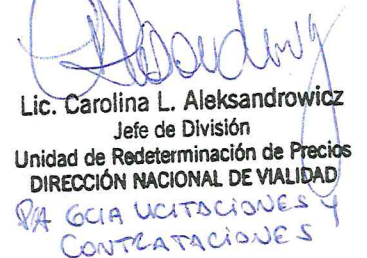 Lic. Carolina L. Aleksandrowicz
Jefe de División
Unidad de Redeterminación de Precios
DIRECCIÓN NACIONAL DE VIALIDAD
P/A GCIA LICITACIONES Y
CONTRATACIONES